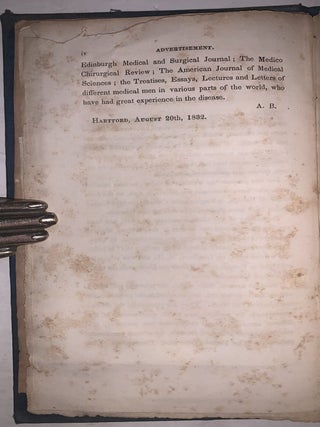 iv ADVERTISEMENT.
Edinburgh Medical and Surgical Journal; The Medico
Chirurgical Review; The American Journal of Medical
Sciences; the Treatises, Essays, Lectures and Letters of
different medical men in various parts of the world, who
have had great experience in the disease.
A. B.
HARTFORD, AUGUST 20th, 1832.